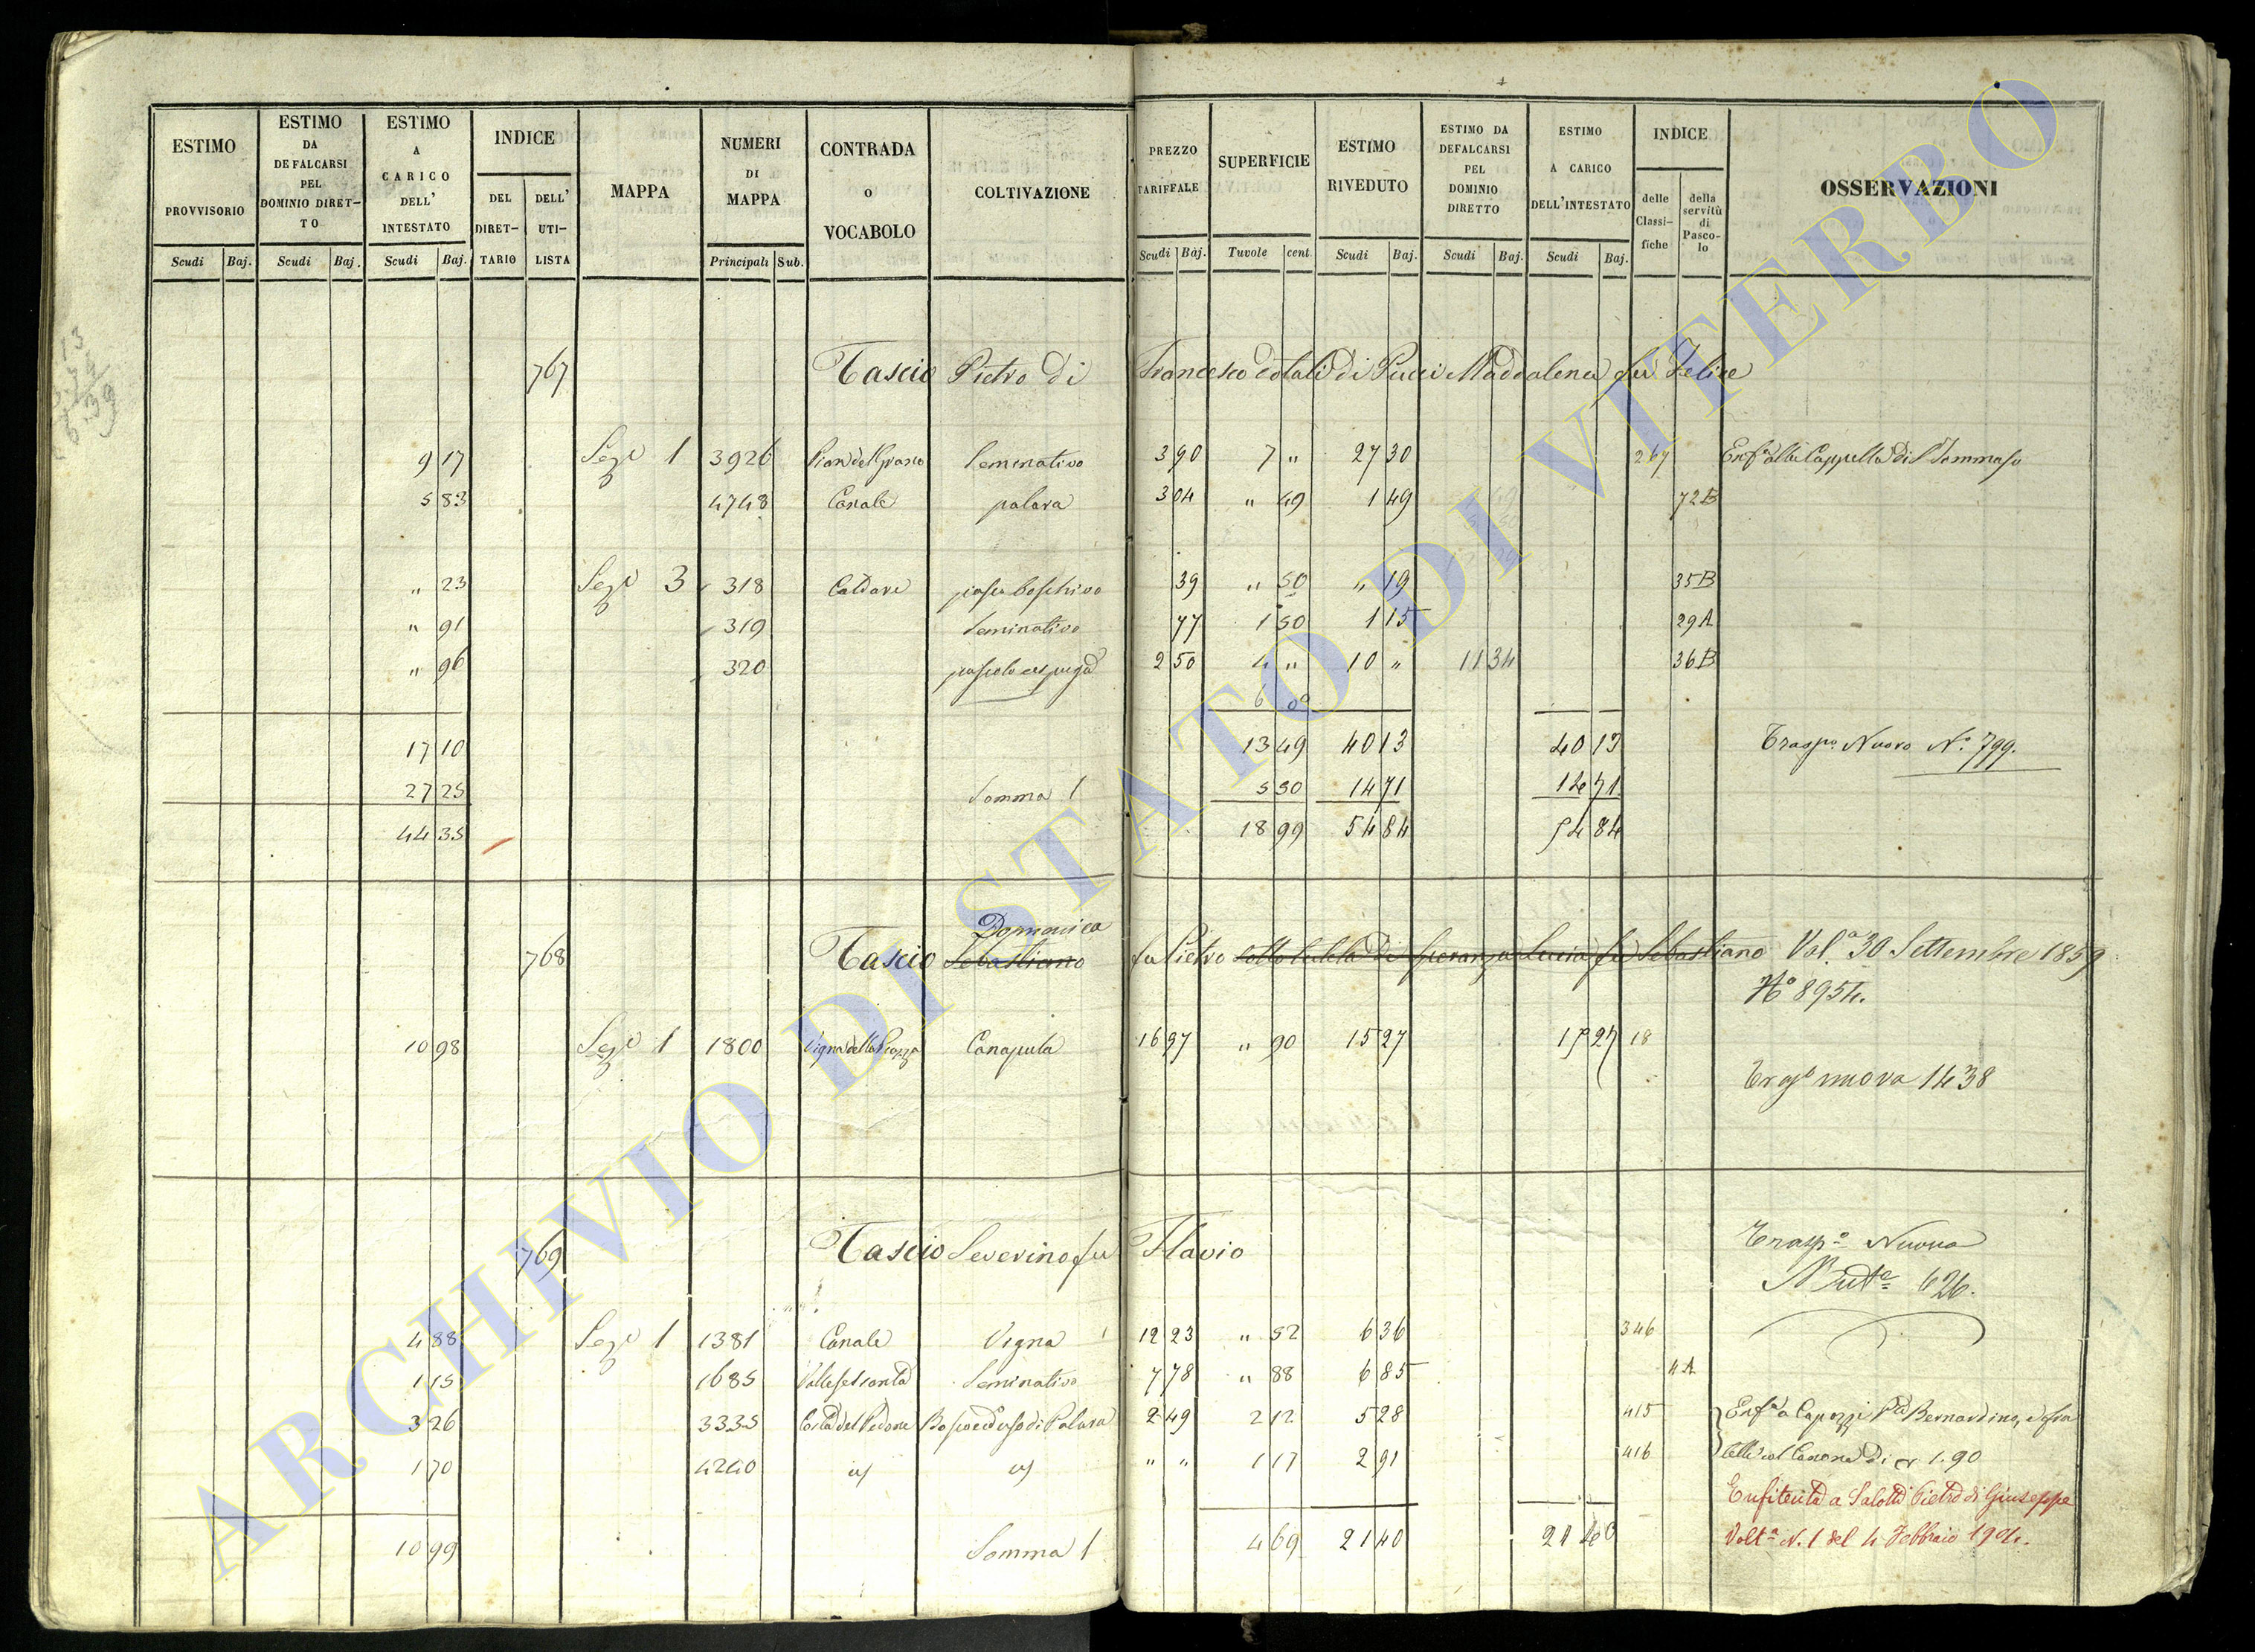 ESTIMO PROVVISORIO Scudi Baj.
ESTIMO DA DEFALCARSI PEL DOMINIO DIRET–TO Scudi Baj.
ESTIMO A CARICO DELL' INTESTATO Scudi Baj.
INDICE DEL DIRET–TARIO DELL' UTI–LISTA
MAPPA
NUMERI DI MAPPA Principali Sub.
CONTRADA O VOCABOLO
COLTIVAZIONE
PREZZO TARIFFALE Scudi Baj.
SUPERFICIE Tavole cent.
ESTIMO RIVEDUTO Scudi Baj.
ESTIMO DA DEFALCARSI PEL DOMINIO DIRETTO Scudi Baj.
ESTIMO A CARICO DELL'INTESTATO Scudi Baj.
INDICE delle Classi–fiche della servitù di Pasco–lo
OSSERVAZIONI
767 Tascio Pietro di Francesco dotali di Pucci Maddalena fu Felice
9 17 Seze 1 3926 Seminativo 3 90 7 " 27 30 267 Enfa alla Cappella di S Tommaso
5 83 4748 Canale palara 3 04 " 49 1 49 72B
" 23 Seze 3 318 Caldare pasco boschivo 39 " 50 " 19 35B
" 91 319 Seminativo 77 1 50 1 15 29A
" 96 320 2 50 4 " 10 " 11 34 36B
6 00
17 10 13 49 40 13 40 13 Traspo Nuovo No 799.
27 25 Somma 1 5 50 14 71 14 71
44 35 18 99 54 84 54 84
Domenica
768 Tascio Sebastiano fu Pietro sotto tutela di Speranza Lucia fu Sebastiano Vola 30 Settembre 1859
No 8954.
10 98 Seze 1 1800 Vigna della Piazza Canaputa 16 97 " 90 15 27 15 27 18
nuova 1438
769 Tascio Severino fu Flavio Traspo Nuovo
626.
4 88 Seze 1 1381 Canale Vigna 12 23 " 52 6 36 346
1 15 1685 Seminativo 7 78 " 88 6 85 4A
3 26 3335 Costa del Pedone Bosco ed uso di Palara 2 49 2 12 5 28 415 Enfa a Capozzi Bernardino,
1 70 4240 id id " " 1 17 2 91 416 col Canone di 1.90
Enfiteuta a Salotti Pietro di Giuseppe
10 99 Somma 1 4 69 21 40 21 40 Volta N. 1 del 4 Febbraio 1904.
ARCHIVIO DI STATO DI VITERBO